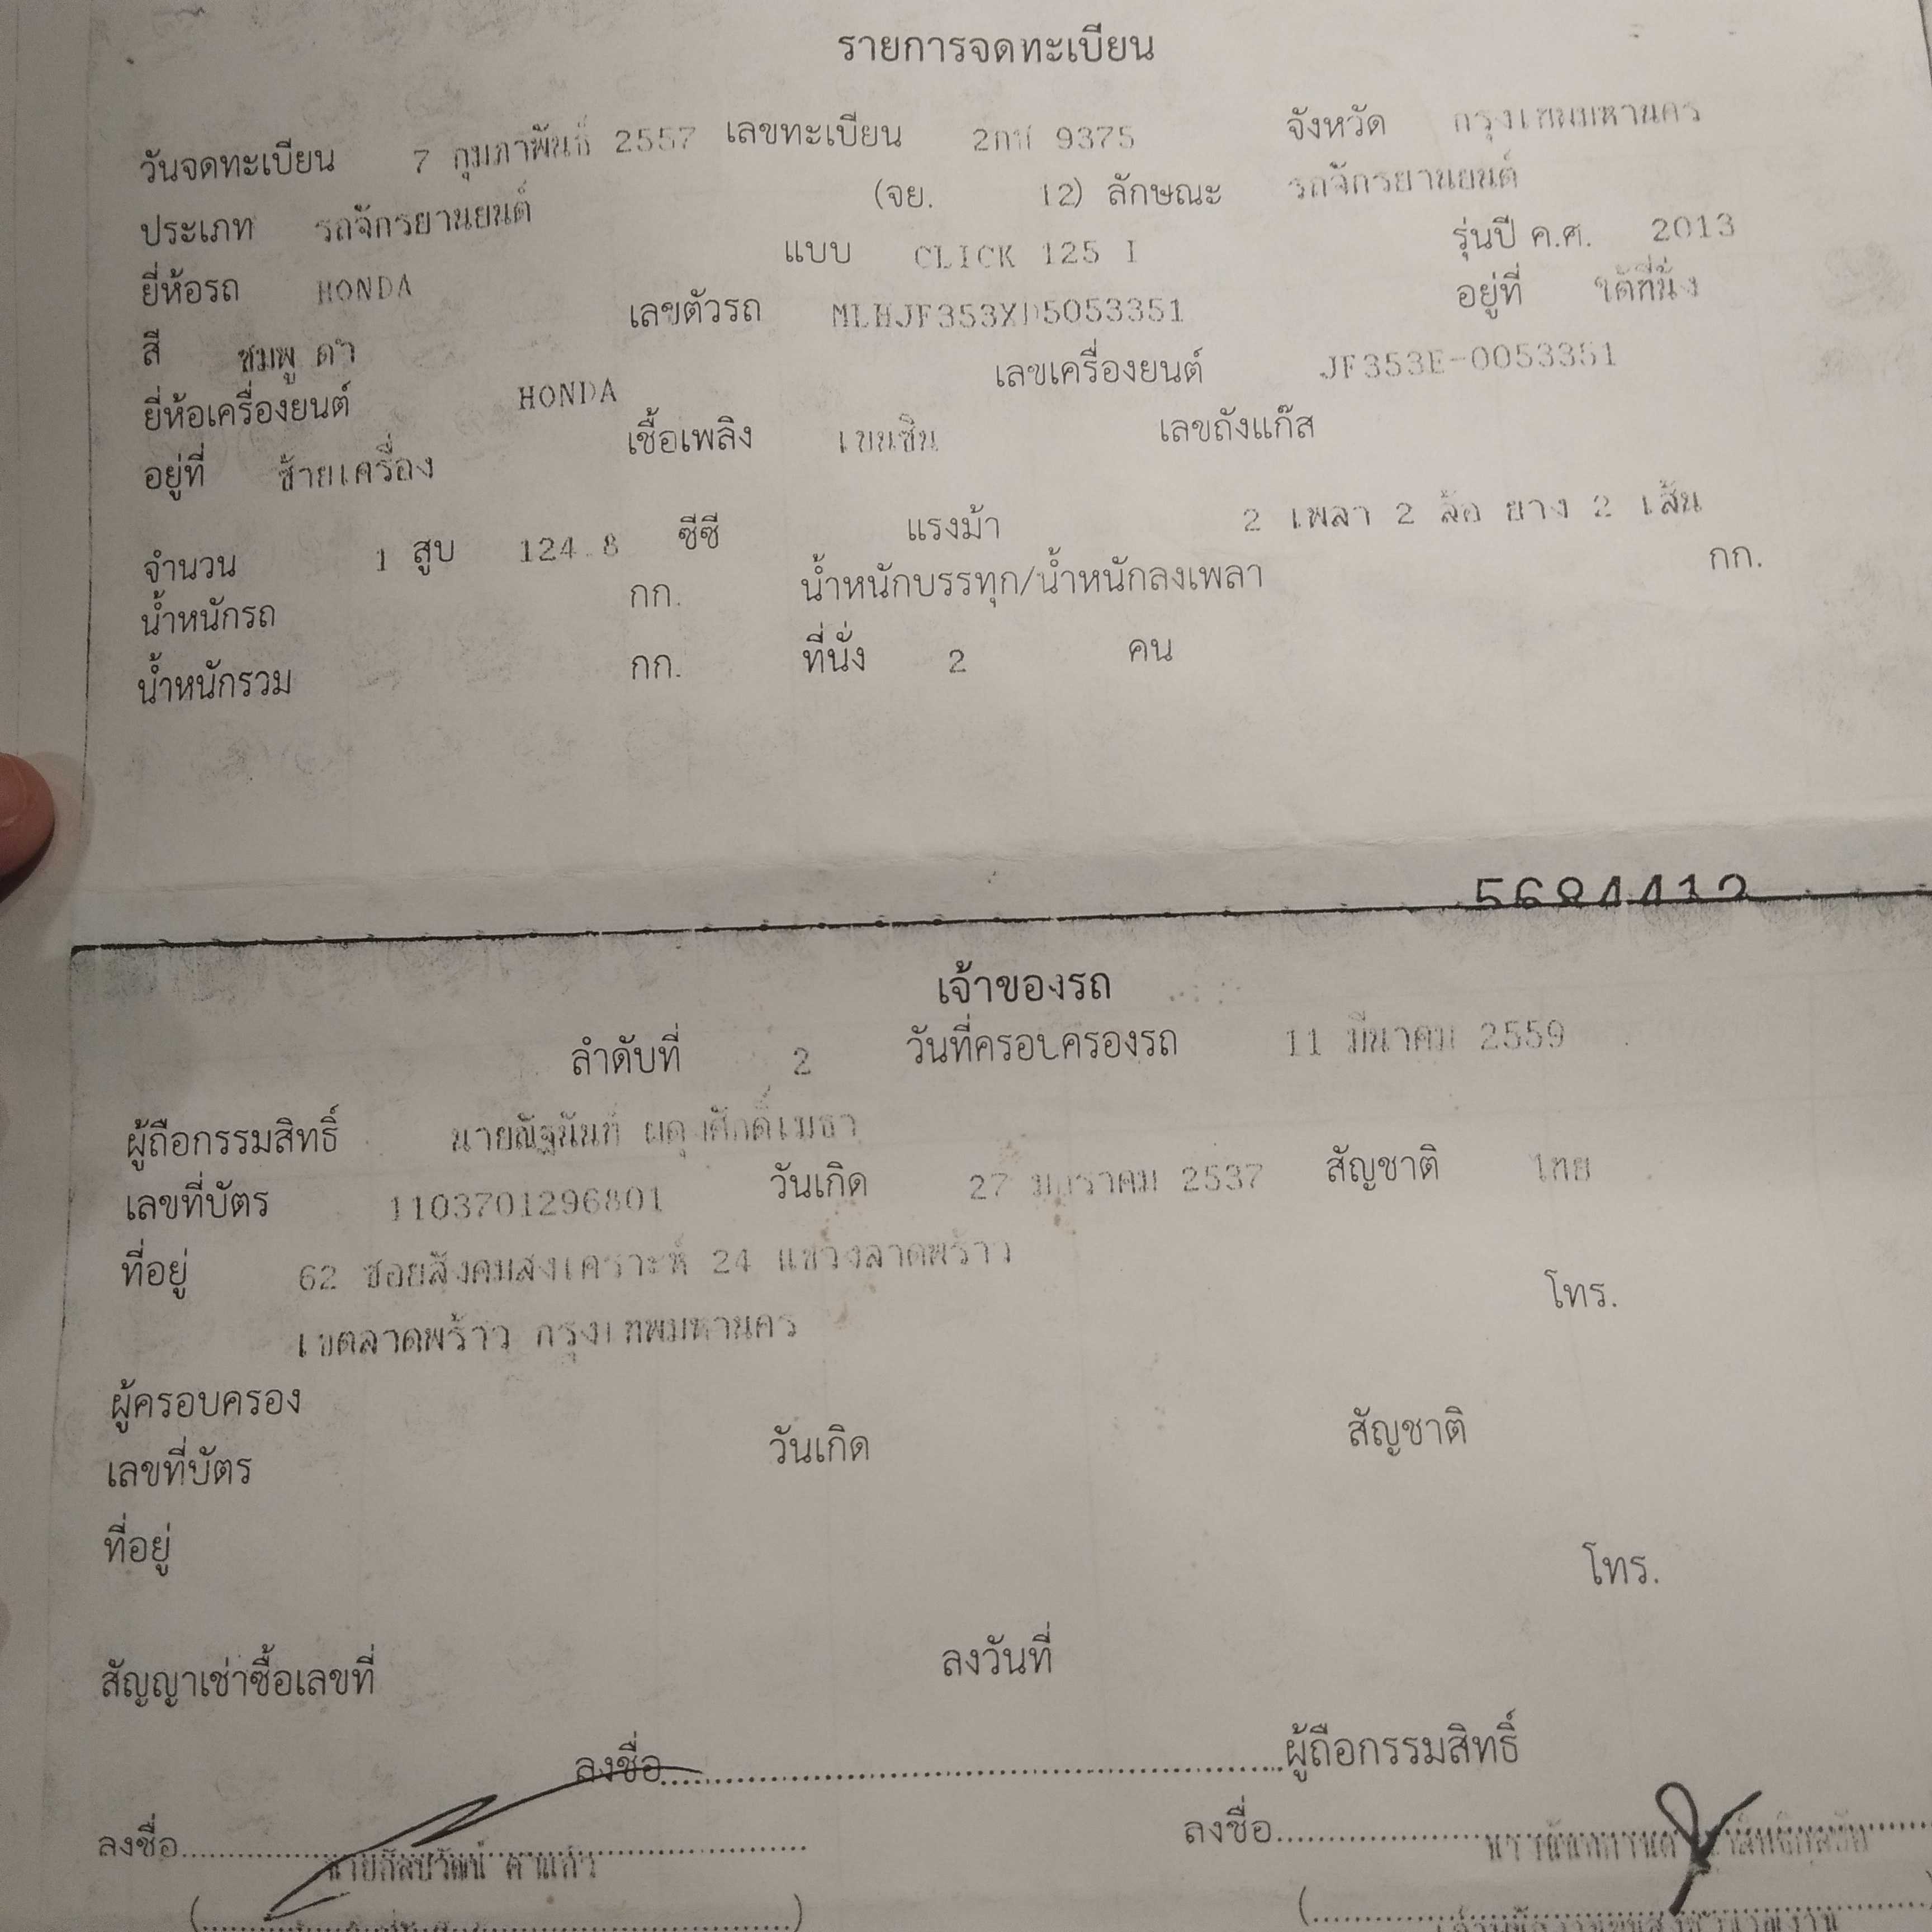 รายการจดทะเบียน
วันจดทะเบียน 7 กุมภาพันธ์ 2557 เลขทะเบียน 9375 จังหวัด กรุงเทพมหานคร
ประเภท รถจักรยานยนต์ (จย. 12) ลักษณะ รถจักรยานยนต์
ยี่ห้อรถ HONDA แบบ CLICK 125 I รุ่นปี ค.ศ. 2013
สี ชมพู ดำ เลขตัวรถ MLHJF353XD5053351 อยู่ที่ ใต้ที่นั่ง
ยี่ห้อเครื่องยนต์ HONDA เลขเครื่องยนต์ JF353E-0053351
อยู่ที่ ซ้ายเครื่อง เชื้อเพลิง เบนซิน เลขถังแก๊ส
จำนวน 1 สูบ 124.8 ซีซี แรงม้า 2 เพลา 2 ล้อ ยาง 2 เส้น
น้ำหนักรถ กก. น้ำหนักบรรทุก/น้ำหนักลงเพลา กก.
น้ำหนักรวม กก. ที่นั่ง 2 คน
เจ้าของรถ
ลำดับที่ 2 วันที่ครอบครองรถ 11 มีนาคม 2559
ผู้ถือกรรมสิทธิ์ นายณัฐนันท์ ผดุงศักดิ์เมธา
เลขที่บัตร 1103701296801 วันเกิด 27 มกราคม 2537 สัญชาติ ไทย
ที่อยู่ 62 ซอยสังคมสงเคราะห์ 24 แขวงลาดพร้าว
เขตลาดพร้าว กรุงเทพมหานคร โทร.
ผู้ครอบครอง
เลขที่บัตร วันเกิด สัญชาติ
ที่อยู่ โทร.
สัญญาเช่าซื้อเลขที่ ลงวันที่
ลงชื่อ ผู้ถือกรรมสิทธิ์
ลงชื่อ ลงชื่อ